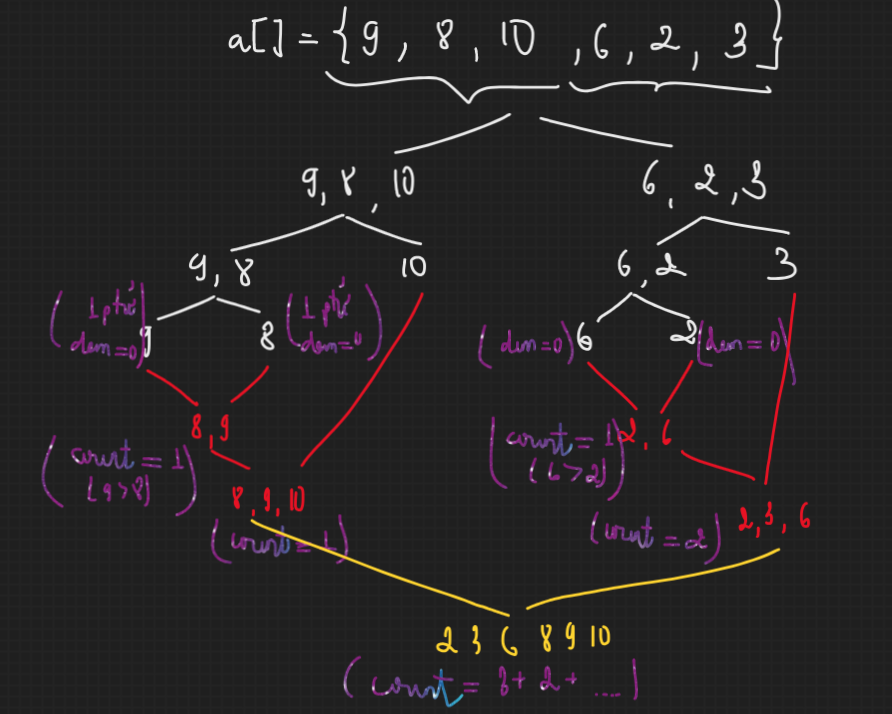 a[] = {9, 8, 10, 6, 2, 3}
9, 8, 10
6, 2, 3
9, 8
10
6, 2
3
(1 ptử
dem=0)
9
8
(1 ptử
dem=0)
(dem=0)
6
2
(dem=0)
8, 9
2, 6
(count = 1
(9>8))
(count = 1
(6>2))
8, 9, 10
2, 3, 6
(count = 1)
(count = 2)
2 3 6 8 9 10
(count = 3+ 2+ ....)